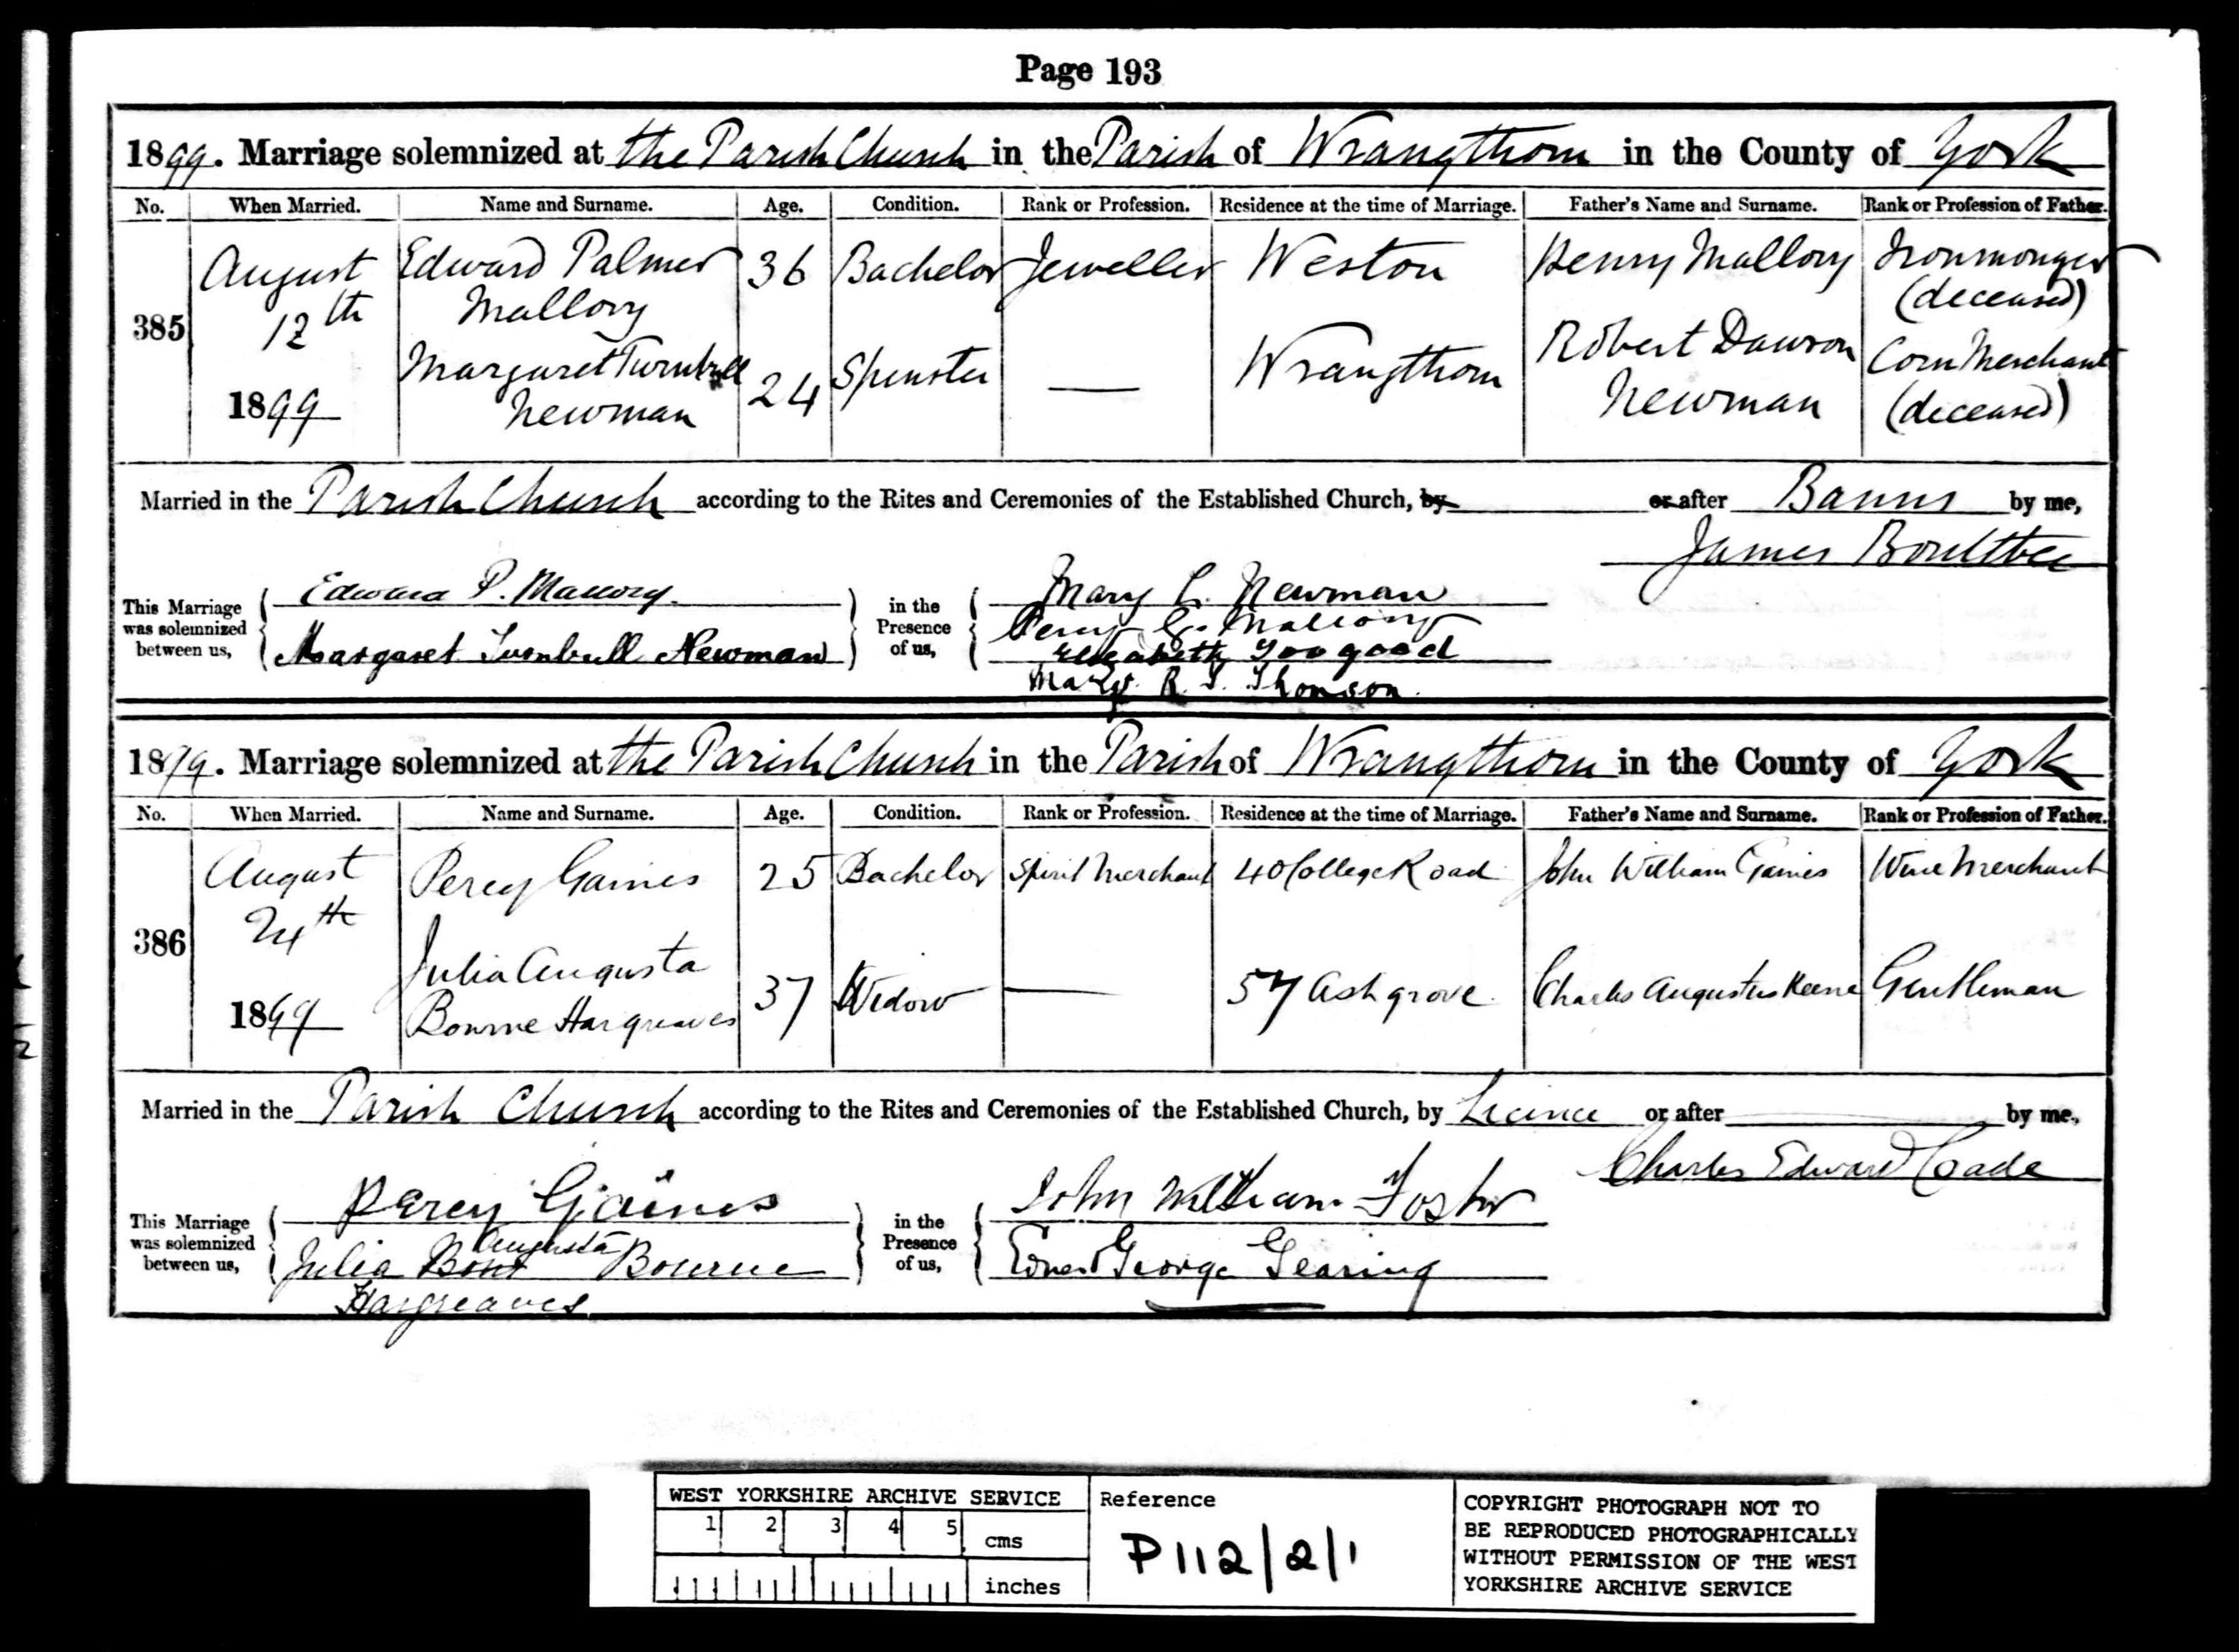 Page 193
1899. Marriage solemnized at the Parish Church in the Parish of Wrangthorn in the County of York
No. When Married. Name and Surname. Age. Condition. Rank or Profession. Residence at the time of Marriage. Father's Name and Surname. Rank or Profession of Father.
August Edward Palmer 36 Bachelor Jeweller Weston Henry Mallory Ironmonger
12th Mallory (deceased)
385
Margaret Turnbull 24 Spinster — Wrangthorn Robert Dawson Corn Merchant
1899 Newman Newman (deceased)
Married in the Parish Church according to the Rites and Ceremonies of the Established Church, by or after Banns by me,
James Boultbee
This Marriage was solemnized between us,
Edward P. Mallory.
Margaret Turnbull Newman
in the Presence of us,
Mary L. Newman
Percy G. Mallory
Elizabeth Toogood
Margt. R. T. Thomson.
1899. Marriage solemnized at the Parish Church in the Parish of Wrangthorn in the County of York
No. When Married. Name and Surname. Age. Condition. Rank or Profession. Residence at the time of Marriage. Father's Name and Surname. Rank or Profession of Father.
August Percy Gaines 25 Bachelor Spirit Merchant 40 College Road John William Gaines Wine Merchant
24th
386
Julia Augusta 37 Widow — 57 Ash grove. Charles Augustus Keene Gentleman
1899 Bourne Hargreaves
Married in the Parish Church according to the Rites and Ceremonies of the Established Church, by Licence or after by me,
Charles Edward Coade
This Marriage was solemnized between us,
Percy Gaines
Julia Augusta Bourne
Hargreaves
in the Presence of us,
John William Foster
Ernest George Gearing
WEST YORKSHIRE ARCHIVE SERVICE
1 2 3 4 5 cms
inches
Reference
P112/2/1
COPYRIGHT PHOTOGRAPH NOT TO
BE REPRODUCED PHOTOGRAPHICALLY
WITHOUT PERMISSION OF THE WEST
YORKSHIRE ARCHIVE SERVICE